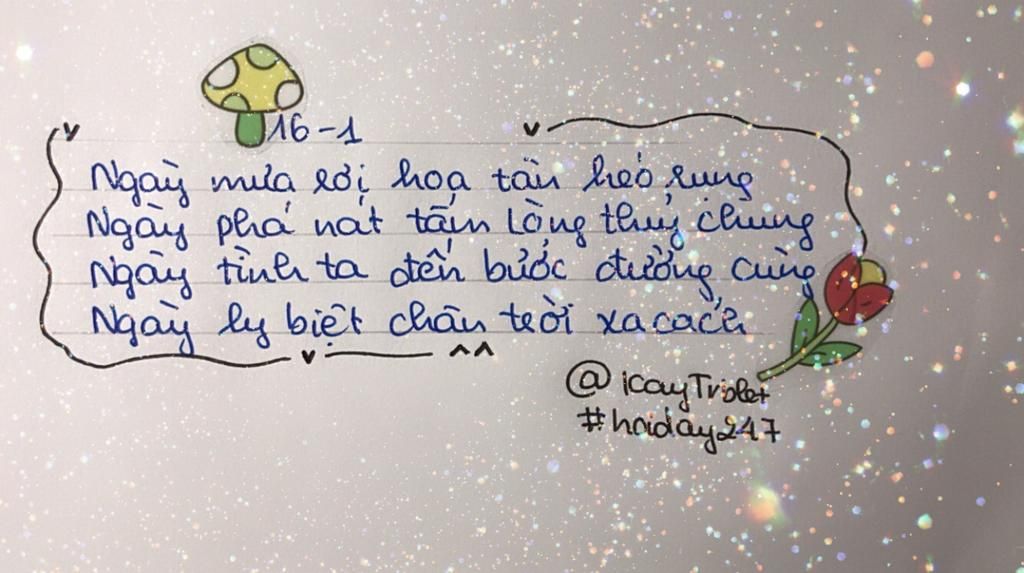 16-1
Ngày mưa rơi hoa tàn héo rụng
Ngày phá nát tấm lòng thuỷ chung
Ngày tình ta đến bước đường cùng
Ngày ly biệt chân trời xa cách
@KayTriplet
#haiday247